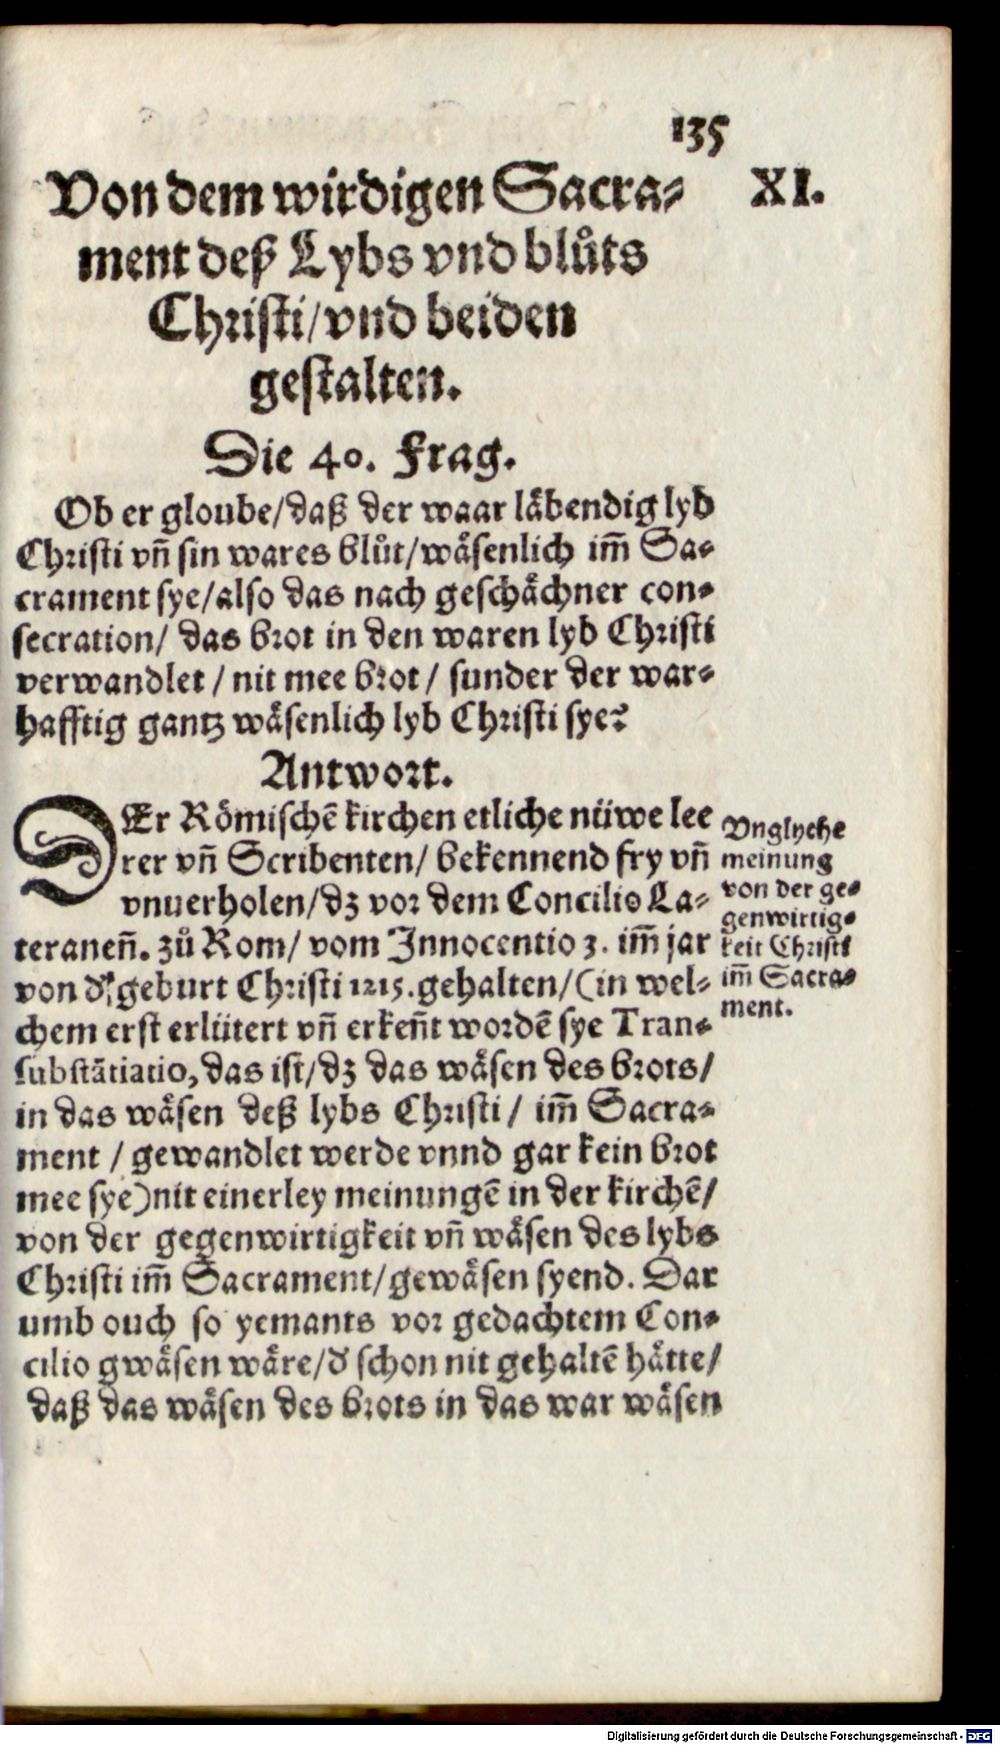 135
XI.
Von dem wirdigen Sacra⸗
ment deß Lybs vnd blůts
Christi/vnd beiden
gestalten.
Die 40. Frag.
Ob er gloube/daß der waar läbendig lyb
Christi vñ sin wares blůt/wäsenlich im̃ Sa⸗
crament sye/also das nach geschächner con⸗
secration/ das brot in den waren lyb Christi
verwandlet / nit mee brot / sunder der war⸗
hafftig gantz wäsenlich lyb Christi sye?
Antwort.
DEr Römischē kirchen etliche nüwe lee
rer vñ Scribenten/ bekennend fry vñ
vnuerholen/dz vor dem Concilio La⸗
teraneñ. zů Rom/ vom Innocentio 3. im̃ jar
von d' geburt Christi 1215. gehalten/(in wel⸗
chem erst erlütert vñ erkeñt wordē sye Tran⸗
substātiatio, das ist/dz das wäsen des brots/
in das wäsen deß lybs Christi / im̃ Sacra⸗
ment / gewandlet werde vnnd gar kein brot
mee sye)nit einerley meinungē in der kirchē/
von der gegenwirtigkeit vñ wäsen des lybs
Christi im̃ Sacrament/gewäsen syend. Dar
umb ouch so yemants vor gedachtem Con⸗
cilio gwäsen wäre/d' schon nit gehaltē hätte/
daß das wäsen des brots in das war wäsen
Vnglyche
meinung
von der ge⸗
genwirtig⸗
keit Christi
im̃ Sacra⸗
ment.
Digitalisierung gefördert durch die Deutsche Forschungsgemeinschaft - DFG